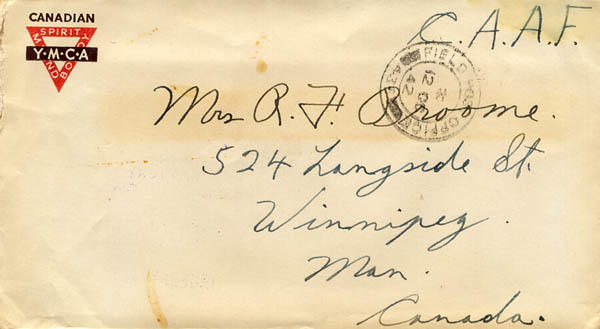 CANADIAN
SPIRIT
MIND
BODY
Y·M·C·A
C.A.A.F.
FIELD POST OFFICE
12
42
Mrs R. F. Broome.
524 Langside St.
Winnipeg.
Man.
Canada.